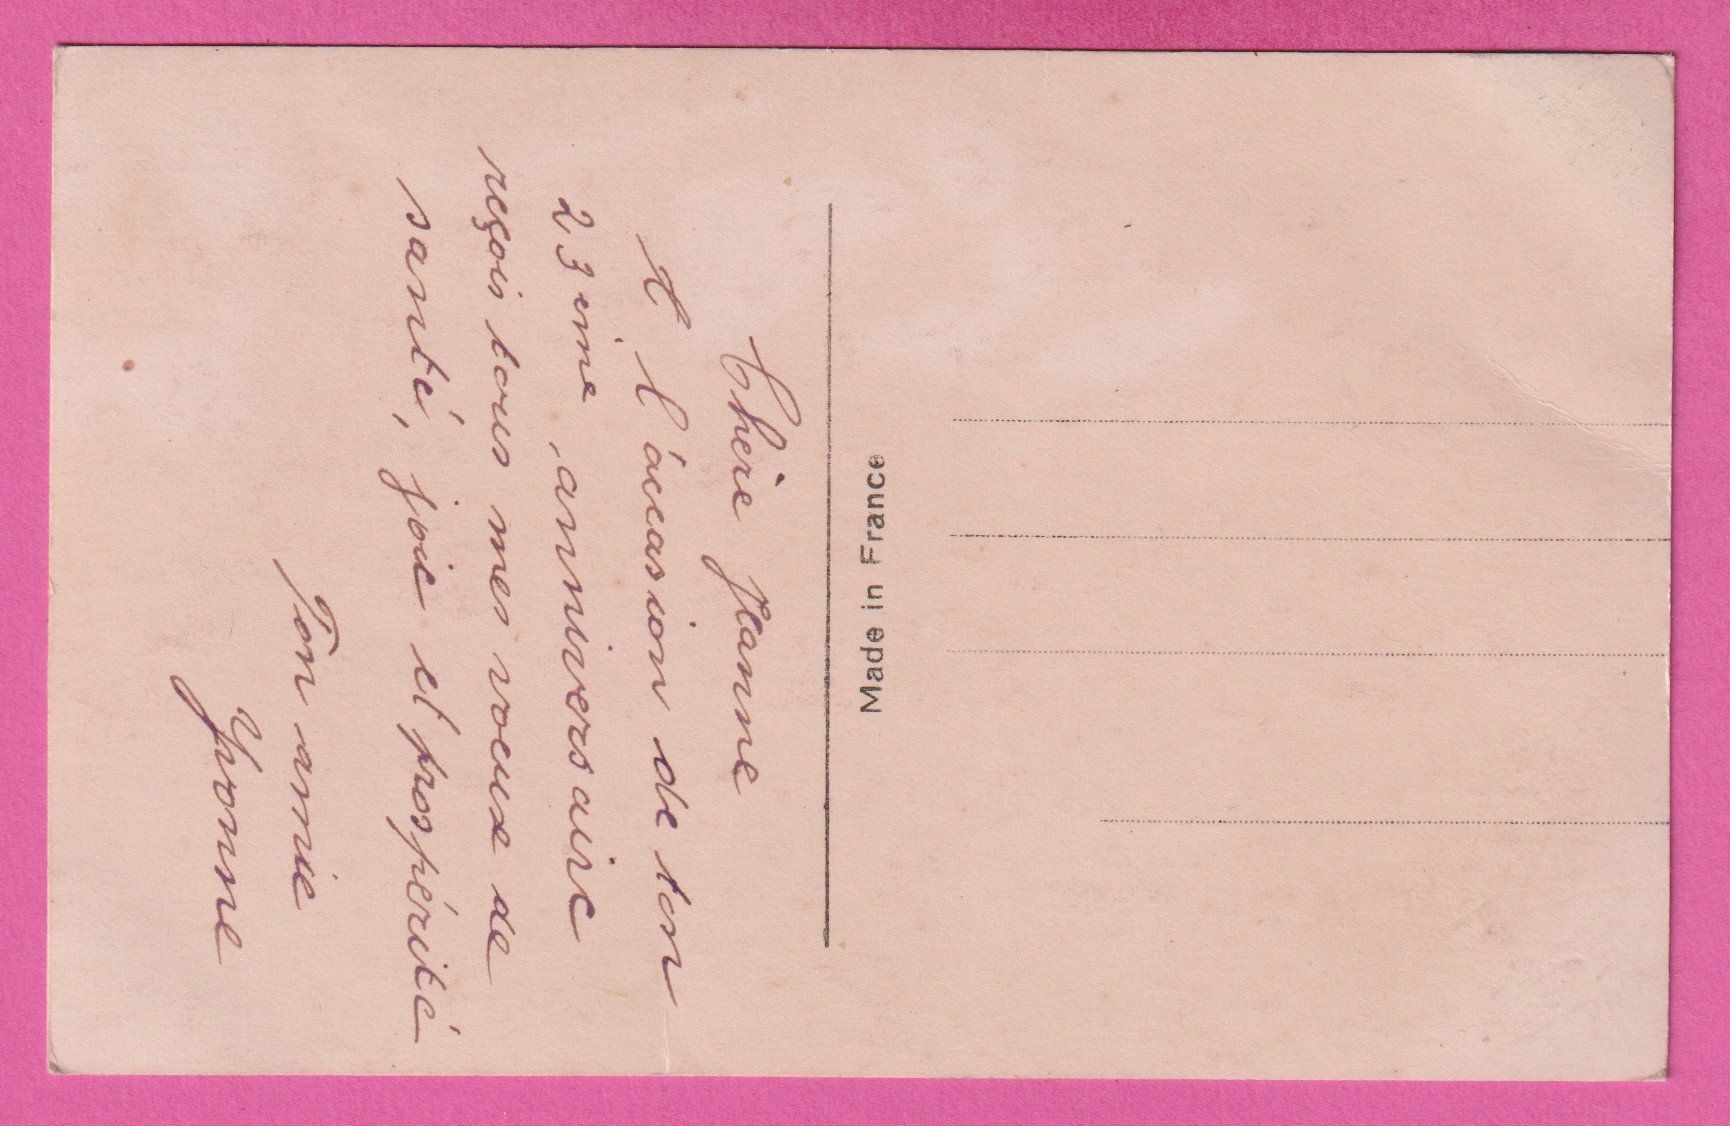 Chère Jeanne
A l'occasion de ton
23 ème anniversaire
reçois tous mes voeux de
santé, joie et prospérité
Ton amie
Yvonne
Made in France